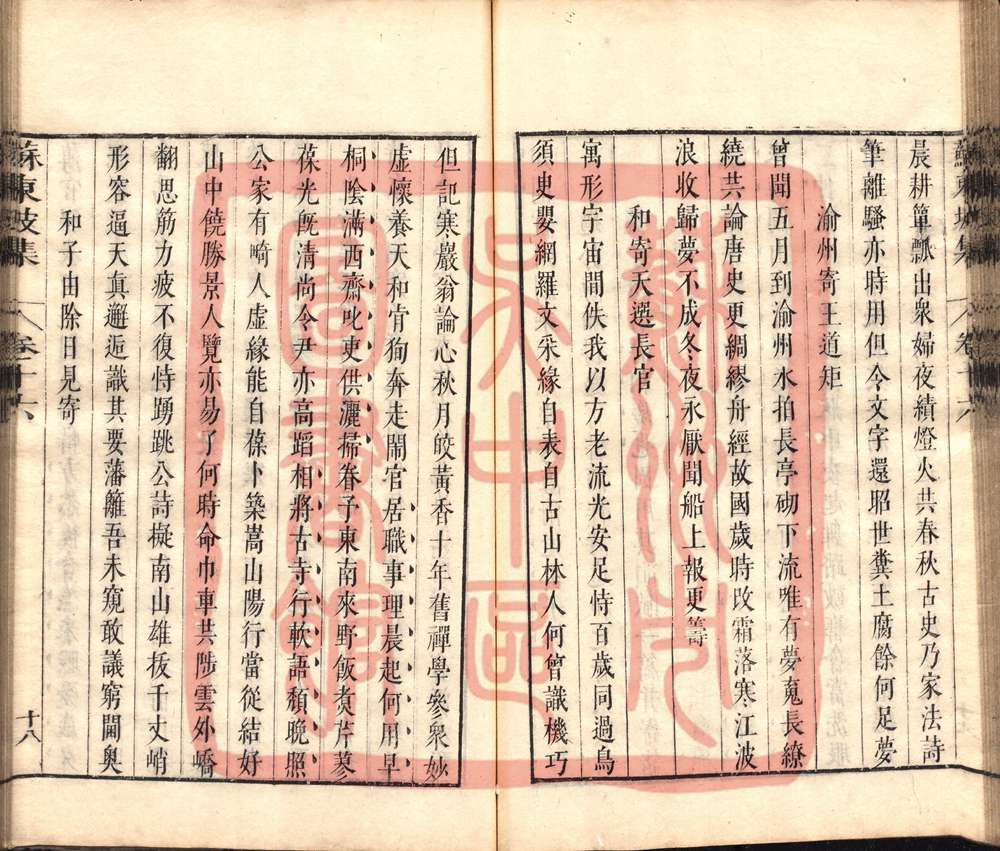 蘇東坡集 卷十六
晨耕簞瓢出衆婦夜績燈火共春秋古史乃家法詩
筆離騷亦時用但令文字還昭世糞土腐餘何足夢
渝州寄王道矩
曾聞五月到渝州水拍長亭砌下流唯有夢䰟長繚
繞共論唐史更綢繆舟經故國歲時改霜落寒江波
浪收歸夢不成冬夜永厭聞船上報更籌
和寄天選長官
寓形宇宙間佚我以方老流光安足恃百歲同過鳥
須臾嬰網羅文采緣自表自古山林人何曾識機巧
但記寒巖翁論心秋月皎黃香十年舊禪學參衆妙
虛懷養天和肯狥奔走鬧官居職事理晨起何用早
桐陰滿西齋叱吏供灑掃眷予東南來野飯煑芹蓼
葆光旣清尚令尹亦高蹈相將古寺行軟語頹晚照
公家有畸人虛緣能自葆卜築嵩山陽行當從結好
山中饒勝景人覽亦易了何時命巾車共陟雲外嶠
翻思筋力疲不復恃踴跳公詩擬南山雄拔千丈峭
形容逼天眞邂逅識其要藩籬吾未窺敢議窮閫奥
和子由除日見寄
蘇東坡集 卷十六 十八